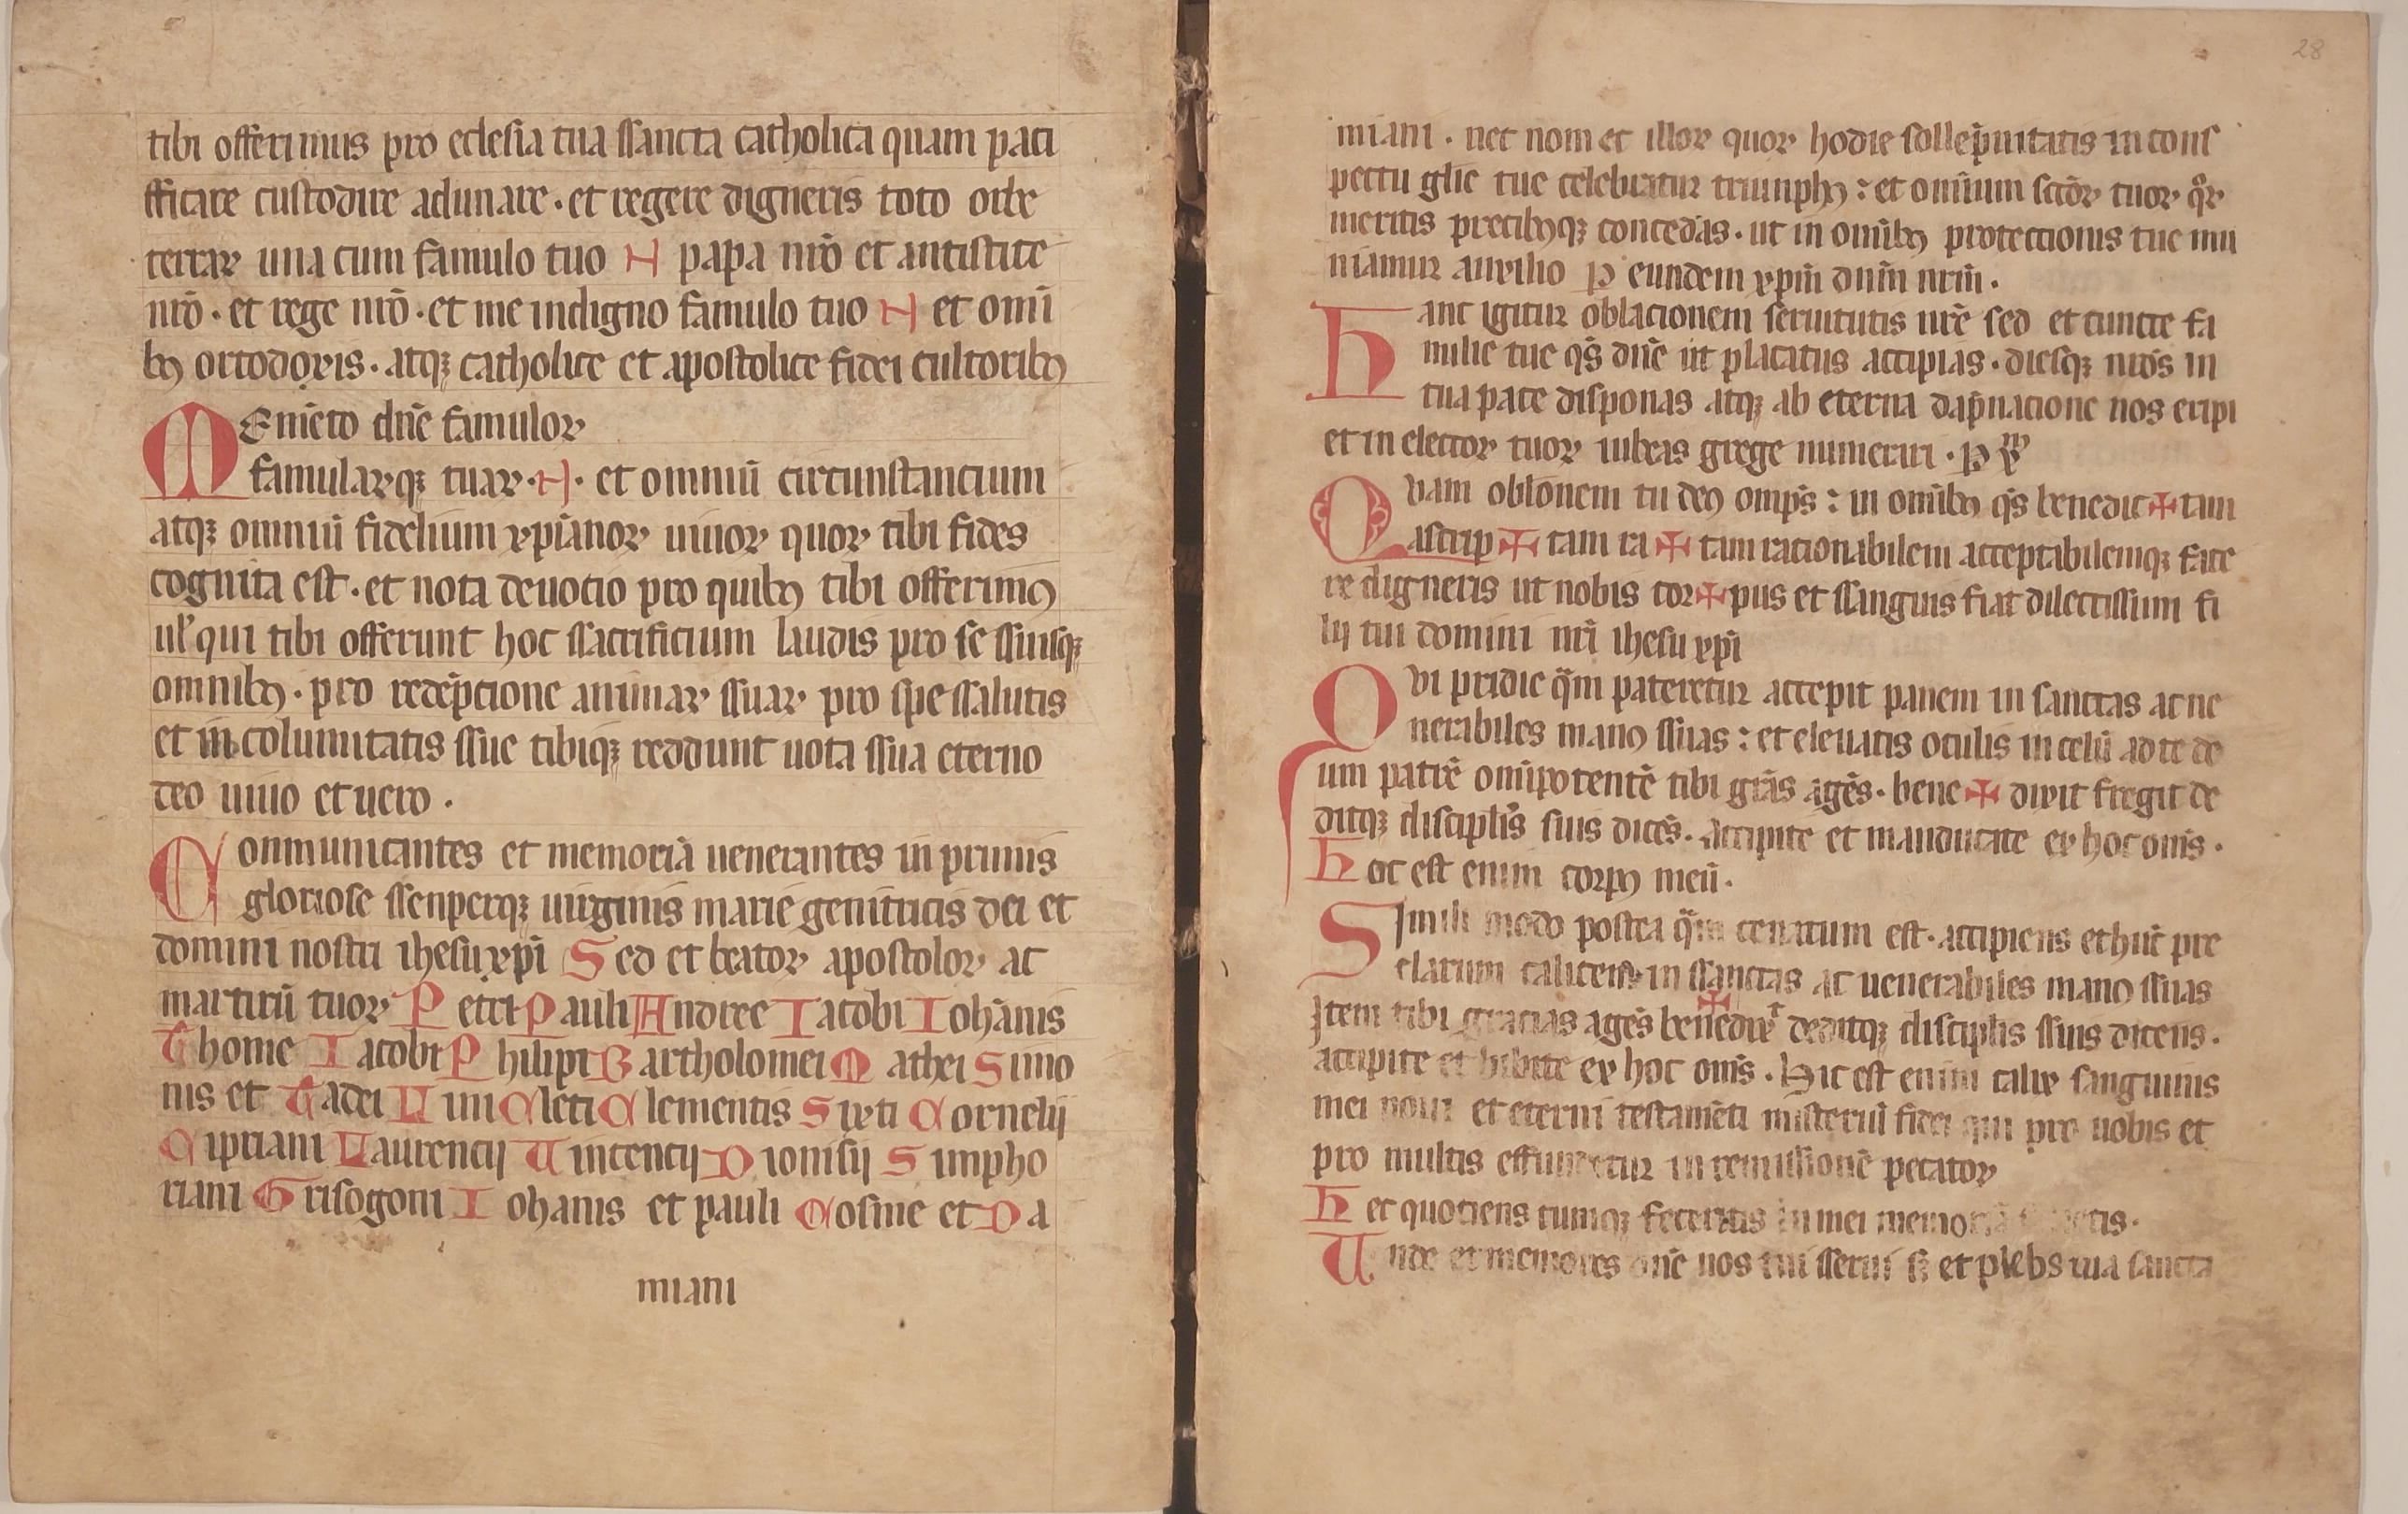 tibi offerimus pro eclesia tua ssancta catholica quam paci
fficare custodire adunare · et regere digneris toto orbe
terraꝝ una cum famulo tuo N papa nr̄o et antistite
nr̄o · et rege nr̄o · et me indigno famulo tuo N et om̄i
bꝫ ortodoxis · atqꝫ catholice et apostolice fidei cultoribꝫ
Mem̄eto dn̄e famuloꝝ
famularꝝqꝫ tuaꝝ · N · et omniū circunstancium
atqꝫ omniū fidelium xp̄ianoꝝ uiuoꝝ quoꝝ tibi fides
cognita est · et nota deuocio pro quibꝫ tibi offerimꝰ
ul̓ qui tibi offerunt hoc ssacrificium laudis pro se ssuisqꝫ
omnibꝫ · pro redēpcione animaꝝ ssuaꝝ pro spe ssalutis
et incolumitatis ssue tibiqꝫ reddunt uota ssua eterno
deo uiuo et uero ·
Conmunicantes et memoriā uenerantes in primis
gloriose ssenperqꝫ uirginis marie genitricis dei et
domini nostri ihesu xp̄i Sed et beatoꝝ apostoloꝝ ac
martirū tuoꝝ Petri Pauli Andree Iacobi Iohānis
Thome Iacobi Philipi Bartholomei Mathei Simo
nis et Tadei Lini Cleti Clementis Sixti Cornelij
Cipriani Laurencij Vincencij Dionisij Simpho
riani Grisogoni Iohanis et pauli Cosme et Da
miani
28
miani · nec non et illoꝝ quoꝝ hodie sollēpnitatis in cons
pectu gl̄ie tue celebratur triunphꝫ : et omnium sc̄oꝝ tuoꝝ qͦꝝ
meritis precibꝫqꝫ concedas · ut in om̄ibꝫ protectionis tue mu
niamur auxilio ꝑ eundem xp̄m dn̄m nr̄m ·
Hanc igitur oblacionem seruitutis nr̄e sed et cuncte fa
milie tue qs̄ dn̄e ut placatus accipias · diesqꝫ nr̄os in
tua pace disponas atqꝫ ab eterna dāpnacione nos eripi
et in electoꝝ tuoꝝ iubeas grege numerari · ꝑ xp̄m
Quam obl̄onem tu deꝰ omp̄s : in om̄ibꝫ qs̄ benedic✠tam
ascrip✠tam ra✠tam racionabilem acceptabilemqꝫ face
re digneris ut nobis cor✠pus et ssanguis fiat dilectissium fi
lij tui domini nr̄i ihesu xp̄i
Qui pridie qͣm pateretur accepit panem in sanctas ac ue
nerabiles manꝰ ssuas : et eleuatis oculis in celū ad te de
um patrē om̄ipotentē tibi gr̄as agēs · bene✠dixit fregit de
ditqꝫ discipl̄is suis dicēs · Accipite et manducate ex hoc om̄s ·
Hoc est enim corpꝰ meū ·
Simili modo postea qͣm cenatum est · accipiens et hūc pre
clarum calicem in ssanctas ac uenerabiles manꝰ ssuas
Item tibi gracias agēs bene✠dixͭ deditqꝫ discipl̄is ssuis dicens ·
accipite et bibite ex hoc om̄s · Hic est enim calix sanguinis
mei noui et eterni testamēti misteriū fidei qui pro uobis et
pro multis effundetur in remissionē pecatoꝝ
Hec quociens cumqꝫ feceritis in mei memoriā
Vnde et memores dn̄e nos tui sserui sꝫ et plebs tua sancta